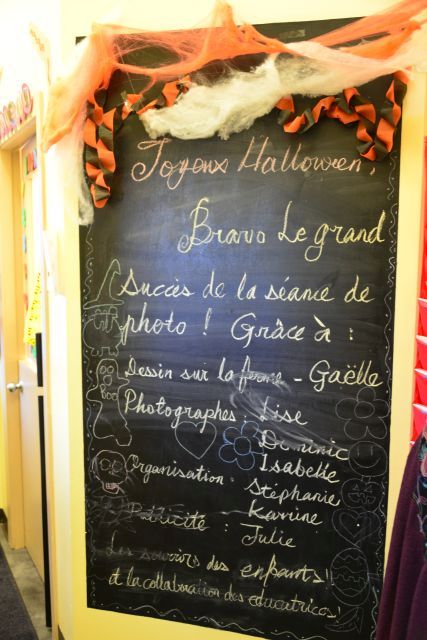 Joyeux Halloween,
Bravo Le grand
Succès de la séance de
photo ! Grâce à :
Dessin sur la ferme - Gaëlle
Photographes : Lise
Dominic
Isabelle
Organisation : Stéphanie
Karine
Publicité : Julie
Les sourires des enfants!
et la collaboration des educatrices!
BOO